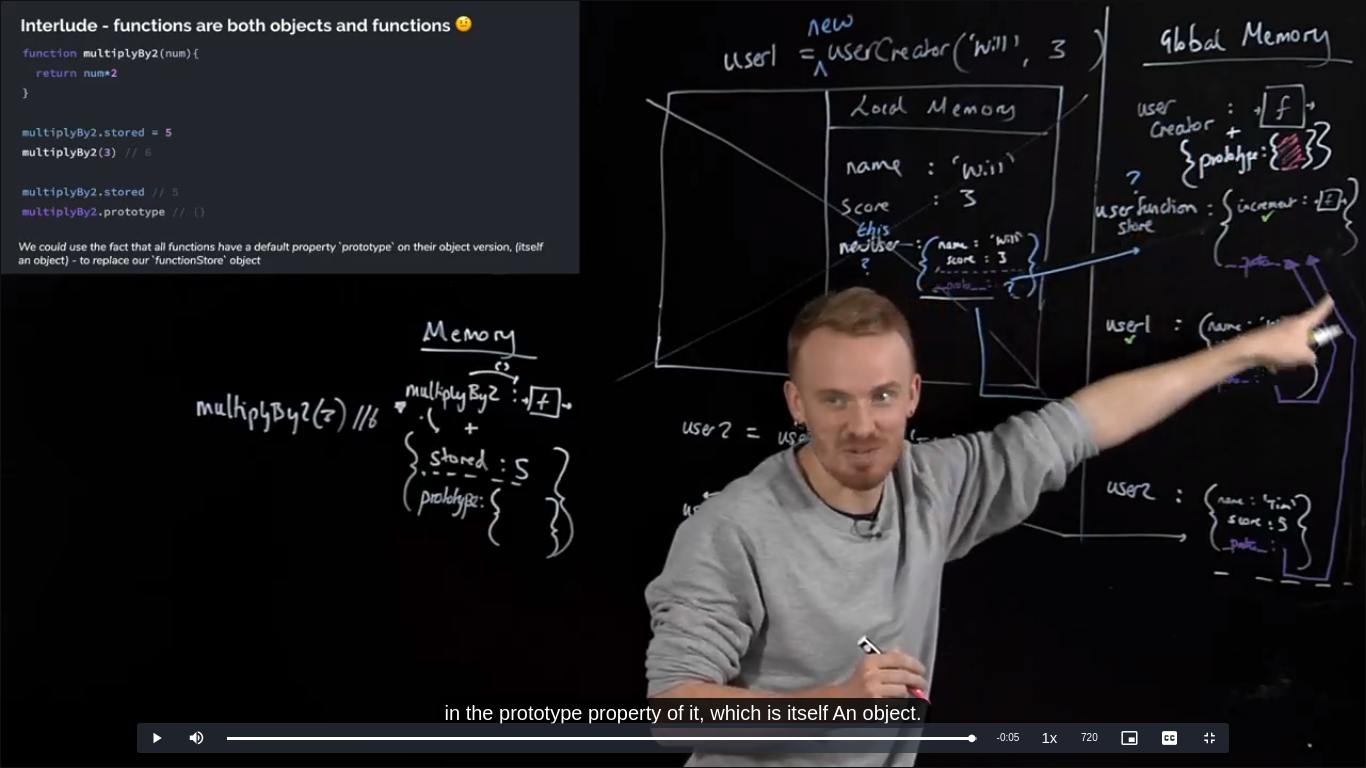 Interlude - functions are both objects and functions 🤨
function multiplyBy2(num){
return num*2
}
multiplyBy2.stored = 5
multiplyBy2(3) // 6
multiplyBy2.stored // 5
multiplyBy2.prototype // {}
We could use the fact that all functions have a default property `prototype` on their object version, (itself
an object) - to replace our `functionStore` object
new
user1 = ^ userCreator('Will', 3 )
Local Memory
name : 'Will'
score : 3
this
newUser : { name : 'Will'
score : 3
__proto__ : ? }
?
user2 =
Global Memory
user
Creator : f
+
{prototype:{ }}
?
userfunction
store : { increment : f
__proto__ }
user1 : { name :
user2 : { name : 'Tim'
score : 5
__proto__ : }
Memory
()
multiplyBy2 : f
+
{ stored : 5
prototype: { } }
multiplyBy2(3) //6
in the prototype property of it, which is itself An object.
-0:05
1x
720
CC